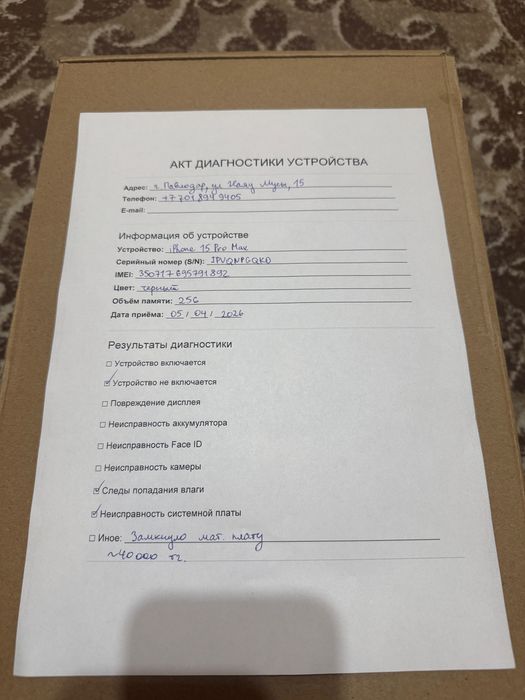 АКТ ДИАГНОСТИКИ УСТРОЙСТВА
Адрес: г. Павлодар, ул Мусы, 15
Телефон: +7 701 894 9405
E-mail:
Информация об устройстве
Устройство: iPhone 15 Pro Max
Серийный номер (S/N): JPVQNPGQKD
IMEI: 350717695791892
Цвет: черный
Объём памяти: 256
Дата приёма: 05 / 04 / 2026
Результаты диагностики
☐ Устройство включается
☑ Устройство не включается
☐ Повреждение дисплея
☐ Неисправность аккумулятора
☐ Неисправность Face ID
☐ Неисправность камеры
☑ Следы попадания влаги
☑ Неисправность системной платы
☐ Иное: Замкнуло мат. плату
~40 000 тг.